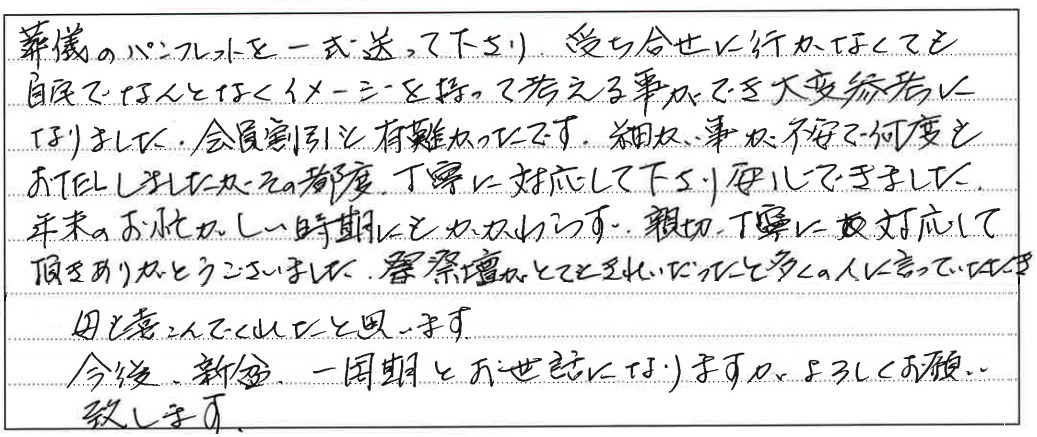 葬儀のパンフレットを一式送って下さり、受ち合せに行かなくても
自宅でなんとなくイメージを持って考える事ができ大変参考に
なりました。会員割引も有難かったです。細かい事が不安で何度も
おたしましたがその都度、丁寧に対応して下さり安心できました。
年末のお忙がしい時期にもかかわらず、親切、丁寧に対応して
頂きありがとうございました。祭壇がとてもきれいだったと多くの人に言っていただき
母も喜こんでくれたと思います。
今後、新盆、一周期とお世話になりますが、よろしくお願い
致します。